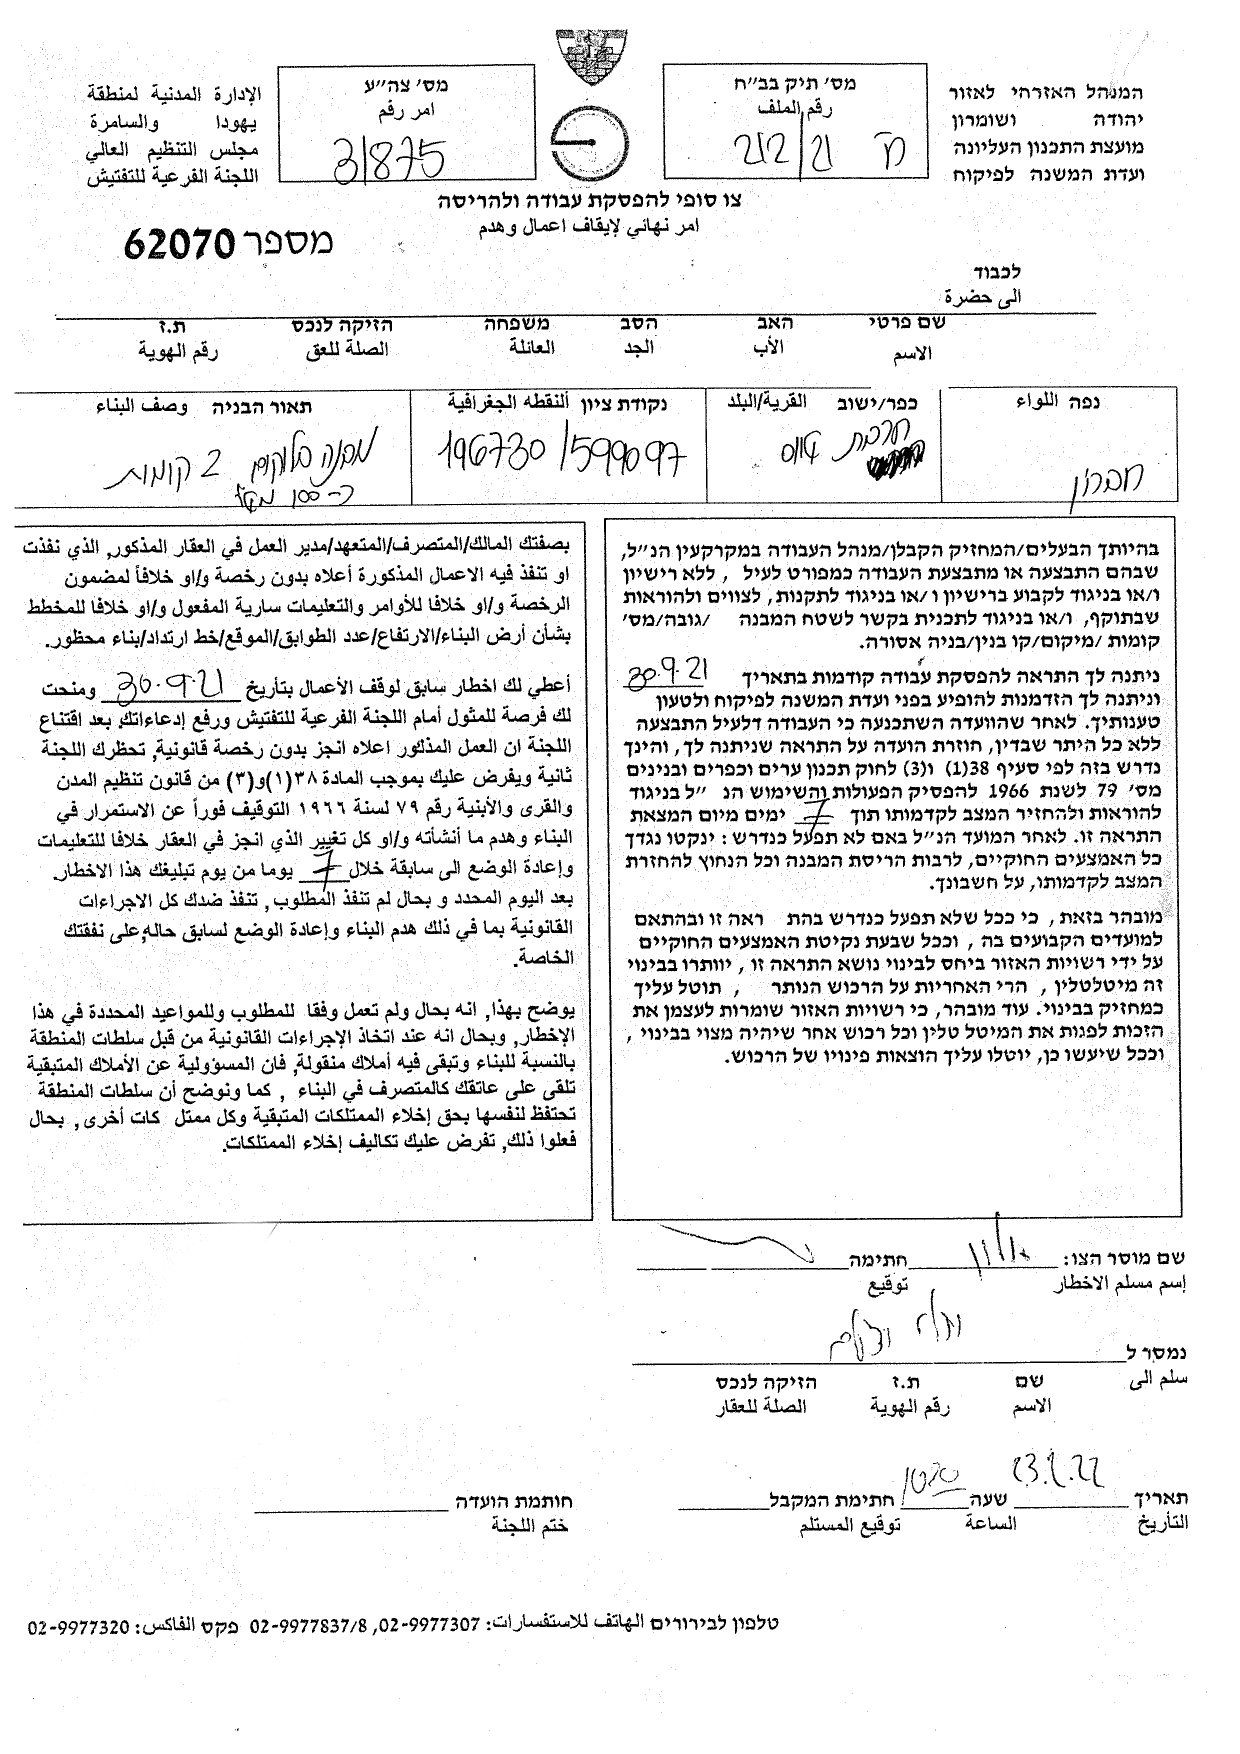 המנהל האזרחי לאזור
יהודה ושומרון
מועצת התכנון העליונה
ועדת המשנה לפיקוח
מס׳ תיק בב״ח
رقم الملف
ח 212/21
מס׳ צה״ע
امر رقم
31875
الإدارة المدنية لمنطقة
يهودا والسامرة
مجلس التنظيم العالي
اللجنة الفرعية للتفتيش
צו סופי להפסקת עבודה ולהריסה
امر نهائي لإيقاف اعمال وهدم
מספר 62070
לכבוד
الى حضرة
שם פרטי האב הסב משפחה הזיקה לנכס ת.ז
الاسم الأب الجد العائلة الصلة للعق رقم الهوية
נפה اللواء
חברון
כפר/ישוב القرية/البلد
חרבת
נקודת ציון ألنقطه الجغرافية
196730/599097
תאור הבניה وصف البناء
מבנה בלוקים 2 קומות
כ-100 מ״ר
בהיותך הבעלים/המחזיק הקבלן/מנהל העבודה במקרקעין הנ״ל,
שבהם התבצעה או מתבצעת העבודה כמפורט לעיל , ללא רישיון
ו/או בניגוד לקבוע ברישיון ו /או בניגוד לתקנות, לצווים ולהוראות
שבתוקף, ו/או בניגוד לתכנית בקשר לשטח המבנה /גובה/מס׳
קומות /מיקום/קו בנין/בניה אסורה.
ניתנה לך התראה להפסקת עבודה קודמות בתאריך 30.9.21
וניתנה לך הזדמנות להופיע בפני ועדת המשנה לפיקוח ולטעון
טענותיך. לאחר שהוועדה השתכנעה כי העבודה דלעיל התבצעה
ללא כל היתר שבדין, חוזרת הועדה על התראה שניתנה לך, והינך
נדרש בזה לפי סעיף 38(1) ו(3) לחוק תכנון ערים וכפרים ובנינים
מס׳ 79 לשנת 1966 להפסיק הפעולות והשימוש הנ ״ל בניגוד
להוראות ולהחזיר המצב לקדמותו תוך 7 ימים מיום המצאת
התראה זו. לאחר המועד הנ״ל באם לא תפעל כנדרש : ינקטו נגדך
כל האמצעים החוקיים, לרבות הריסת המבנה וכל הנחוץ להחזרת
המצב לקדמותו, על חשבונך.
מובהר בזאת , כי ככל שלא תפעל כנדרש בהת ראה זו ובהתאם
למועדים הקבועים בה , וככל שבעת נקיטת האמצעים החוקיים
על ידי רשויות האזור ביחס לבינוי נושא התראה זו , יוותרו בבינוי
זה מיטלטלין , הרי האחריות על הרכוש הנותר , תוטל עליך
כמחזיק בבינוי. עוד מובהר, כי רשויות האזור שומרות לעצמן את
הזכות לפנות את המיטל טלין וכל רכוש אחר שיהיה מצוי בבינוי ,
וככל שיעשו כן, יוטלו עליך הוצאות פינויו של הרכוש.
بصفتك المالك/المتصرف/المتعهد/مدير العمل في العقار المذكور, الذي نفذت
او تنفذ فيه الاعمال المذكورة أعلاه بدون رخصة و/او خلافاً لمضمون
الرخصة و/او خلافا للأوامر والتعليمات سارية المفعول و/او خلافا للمخطط
بشأن أرض البناء/الارتفاع/عدد الطوابق/الموقع/خط ارتداد/بناء محظور.
أعطي لك اخطار سابق لوقف الأعمال بتأريخ 30.9.21 ومنحت
لك فرصة للمثول أمام اللجنة الفرعية للتفتيش ورفع إدعاءاتك. بعد اقتناع
اللجنة ان العمل المذكور اعلاه انجز بدون رخصة قانونية, تحظرك اللجنة
ثانية ويفرض عليك بموجب المادة ٣٨(١)و(٣) من قانون تنظيم المدن
والقرى والأبنية رقم ٧٩ لسنة ١٩٦٦ التوقيف فوراً عن الاستمرار في
البناء وهدم ما أنشأته و/او كل تغيير الذي انجز في العقار خلافا للتعليمات
وإعادة الوضع الى سابقة خلال 7 يوما من يوم تبليغك هذا الاخطار.
بعد اليوم المحدد و بحال لم تنفذ المطلوب, تنفذ ضدك كل الاجراءات
القانونية بما في ذلك هدم البناء وإعادة الوضع لسابق حاله,على نفقتك
الخاصة.
يوضح بهذا, انه بحال ولم تعمل وفقا للمطلوب وللمواعيد المحددة في هذا
الإخطار, وبحال انه عند اتخاذ الإجراءات القانونية من قبل سلطات المنطقة
بالنسبة للبناء وتبقى فيه أملاك منقولة, فان المسؤولية عن الأملاك المتبقية
تلقى على عاتقك كالمتصرف في البناء , كما ونوضح أن سلطات المنطقة
تحتفظ لنفسها بحق إخلاء الممتلكات المتبقية وكل ممتل كات أخرى, بحال
فعلوا ذلك, تفرض عليك تكاليف إخلاء الممتلكات.
שם מוסר הצו: חתימה
إسم مسلم الاخطار توقيع
נמסר ל
سلم الى
שם ת.ז הזיקה לנכס
الاسم رقم الهوية الصلة للعقار
תאריך 23.2.22 שעה 1020 חתימת המקבל חותמת הועדה
التأريخ الساعة توقيع المستلم ختم اللجنة
טלפון לבירורים الهاتف للاستفسارات: 02-9977307, 02-9977837/8 פקס الفاكس: 02-9977320